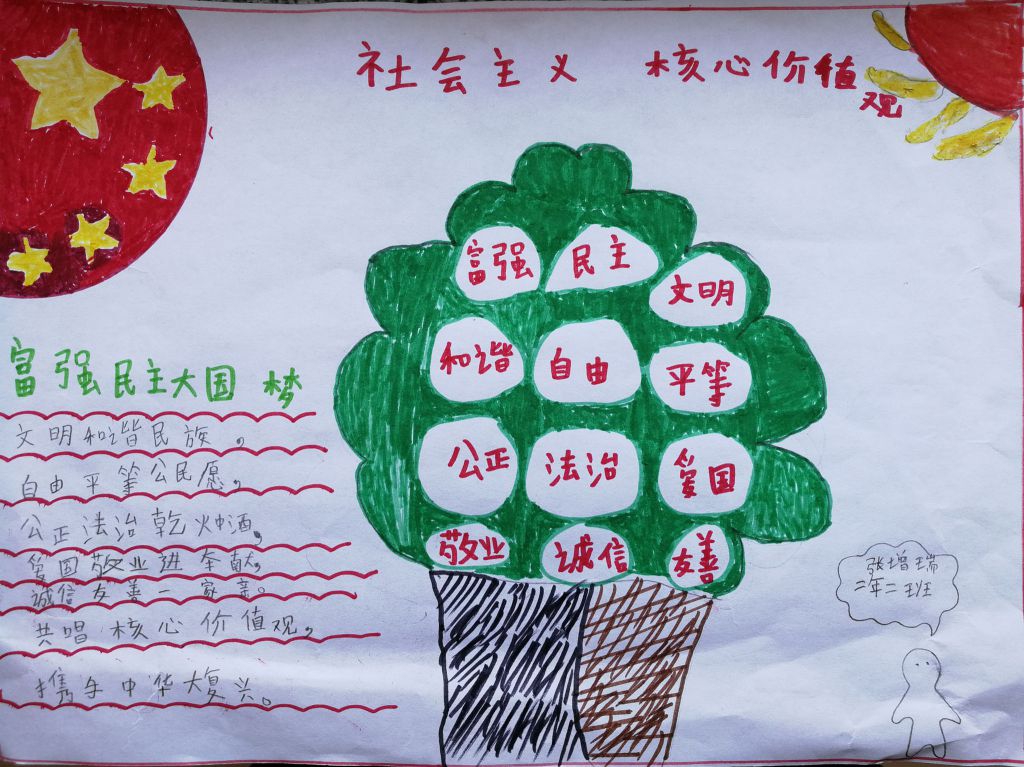 社会主义 核心价值观
富强 民主 文明
和谐 自由 平等
公正 法治 爱国
敬业 诚信 友善
富强民主大国梦
文明和谐民族，
自由平等公民愿，
公正法治乾坤洒，
爱国敬业进奉献，
诚信友善一家亲。
共唱核心价值观，
携手中华大复兴。
张增瑞
二年二班